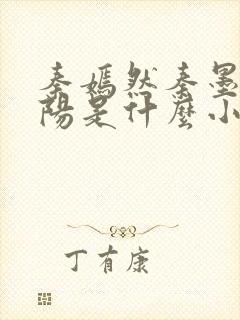 秦嫣然秦墨
陽是什麼小
丁有康